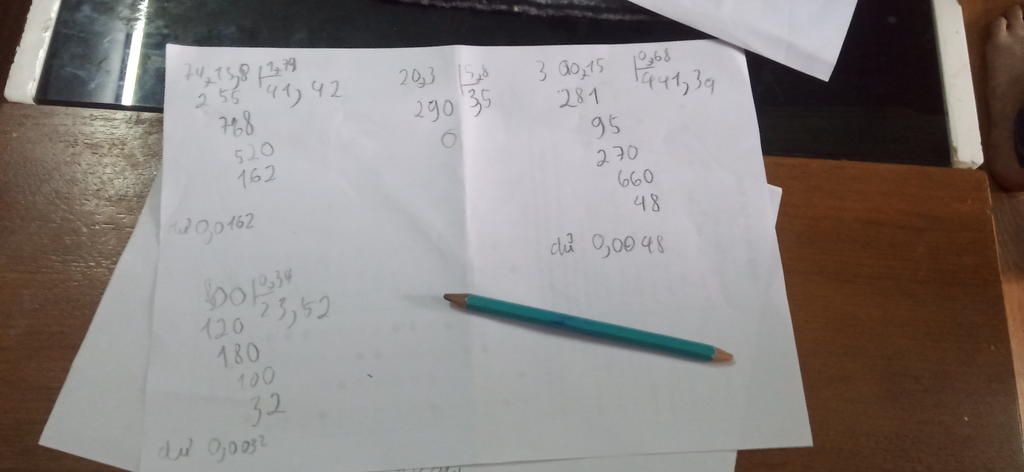 74,15,8 1,79
255 41,42
768
520
162
dư 0,0162
20,3 5,8
290 3,5
0
300,15 0,68
281 441,39
95
270
660
48
dư 0,0048
0,34
120 23,52
180
100
32
dư 0,0032